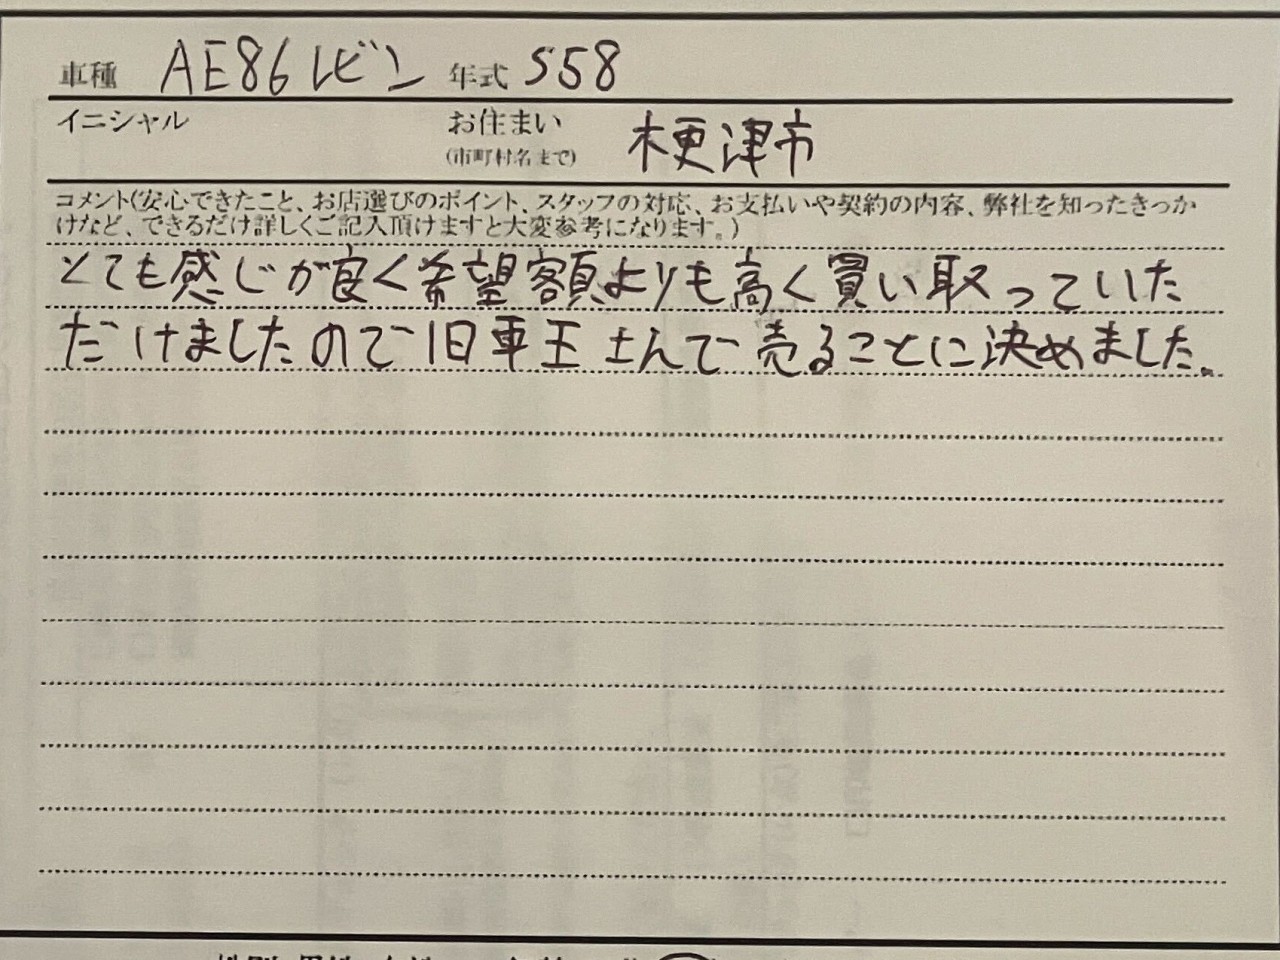 車種 AE86レビン 年式 S58
イニシャル お住まい 木更津市
(市町村名まで)
コメント(安心できたこと、お店選びのポイント、スタッフの対応、お支払いや契約の内容、弊社を知ったきっか
けなど、できるだけ詳しくご記入頂けますと大変参考になります。)
とても感じが良く希望額よりも高く買い取っていた
だけましたので旧車王さんで売ることに決めました。